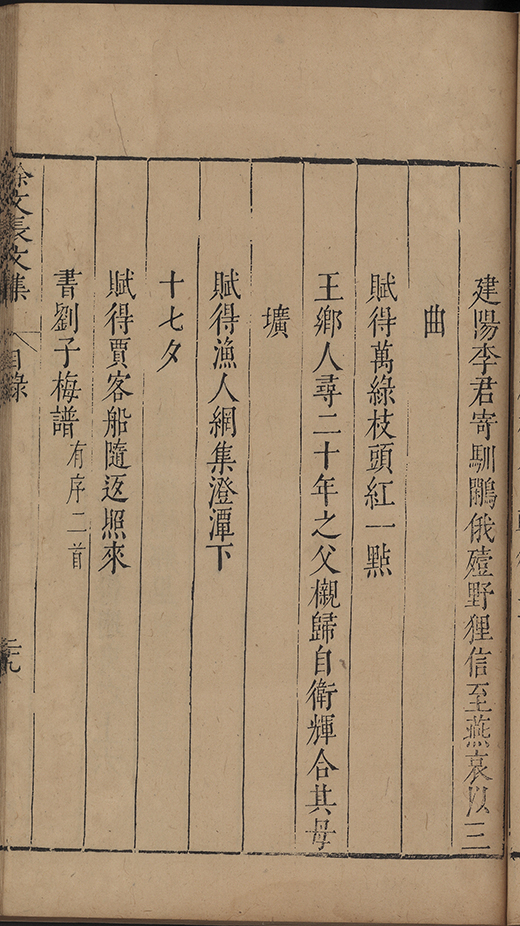 建陽李君寄馴鷴俄殪野狸信至燕哀以三
曲
賦得萬綠枝頭紅一㸃
王鄉人尋二十年之父櫬歸自衛輝合其母
壙
賦得漁人網集澄潭下
十七夕
賦得賈客船隨返照來
書劉子梅譜有序二首
徐文長文集 目錄 二九